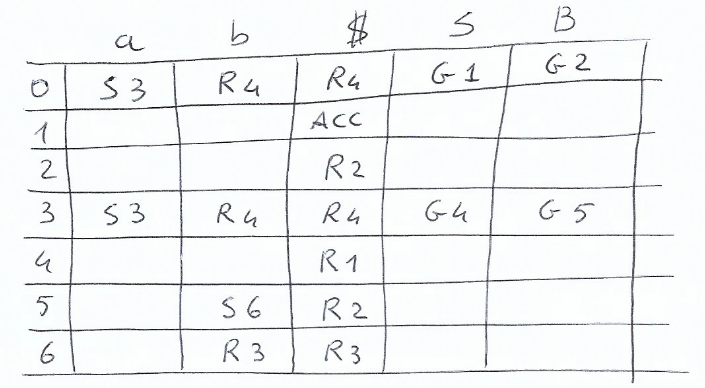 a b $ S B
0 S3 R4 R4 G1 G2
1 ACC
2 R2
3 S3 R4 R4 G4 G5
4 R1
5 S6 R2
6 R3 R3